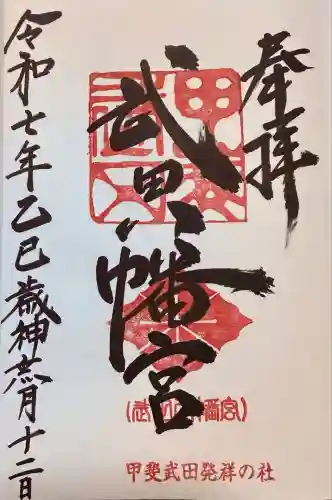 奉拝
武田八幡宮
令和七年乙巳歳神無月十二日
(武田八幡宮)
甲斐武田発祥の社